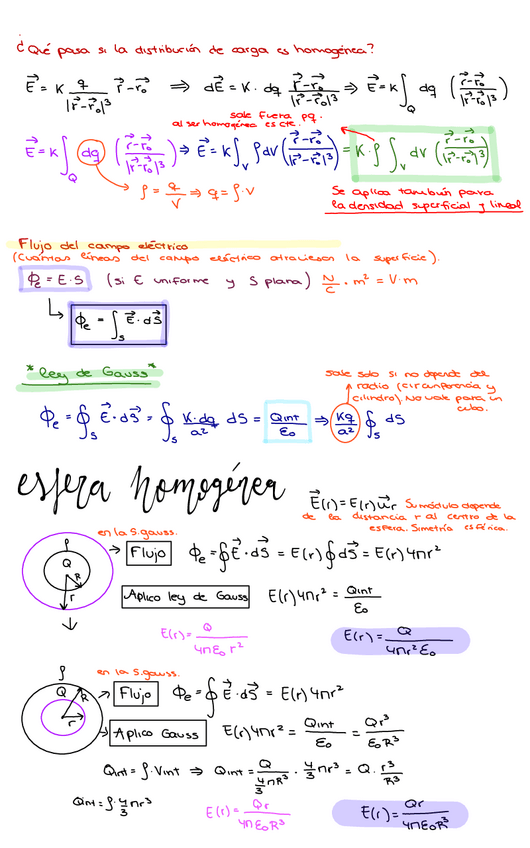 ¿Qué pasa si la distribución de carga es homogénea?
E⃗ = K q/|r⃗-r⃗₀|³ r⃗-r⃗₀ ⇒ dE⃗ = K · dq r⃗-r⃗₀/|r⃗-r⃗₀|³ ⇒ E⃗ = K ∫_Q dq (r⃗-r⃗₀/|r⃗-r⃗₀|³)
sale fuera pq.
al ser homogénea es cte.
E⃗ = K ∫_Q dq (r⃗-r⃗₀/|r⃗-r⃗₀|³) ⇒ E⃗ = K ∫_V ρ dv (r⃗-r⃗₀/|r⃗-r⃗₀|³) = K · ρ ∫_V dv (r⃗-r⃗₀/|r⃗-r⃗₀|³)
ρ = q/V ⇒ q = ρ · V
Se aplica también para
la densidad superficial y lineal
Flujo del campo eléctrico
(Cuántas líneas del campo eléctrico atraviesan la superficie).
Φe = E · S (si E uniforme y S plana) N/C · m² = V · m
↳ Φe = ∫_S E⃗ · dS⃗
*Ley de Gauss*
Sale solo si no depende del
radio (circunferencia y
cilindro). No vale para un
cubo.
Φe = ∮_S E⃗ · dS⃗ = ∮_S K · dq/a² dS = Qint/ε₀ ⇒ Kq/a² ∮_S dS
esfera homogénea
E⃗(r) = E(r) u⃗r Su módulo depende
de la distancia r al centro de la
esfera. Simetría esférica.
en la S. gauss.
ρ
Q
R
r
Flujo Φe = ∮ E⃗ · dS⃗ = E(r) ∮ dS⃗ = E(r) 4πr²
Aplico ley de Gauss E(r) 4πr² = Qint/ε₀
E(r) = Q/4πε₀ r²
E(r) = Q/4πr²ε₀
en la S. gauss.
ρ
Q
R
r
Flujo Φe = ∮ E⃗ · dS⃗ = E(r) 4πr²
Aplico Gauss E(r) 4πr² = Qint/ε₀ = Qr³/ε₀R³
Qint = ρ · Vint ⇒ Qint = Q/(4/3 πR³) · 4/3 πr³ = Q · r³/R³
Qint = ρ · 4/3 πr³
E(r) = Qr/4πε₀R³
E(r) = Qr/4πε₀R³